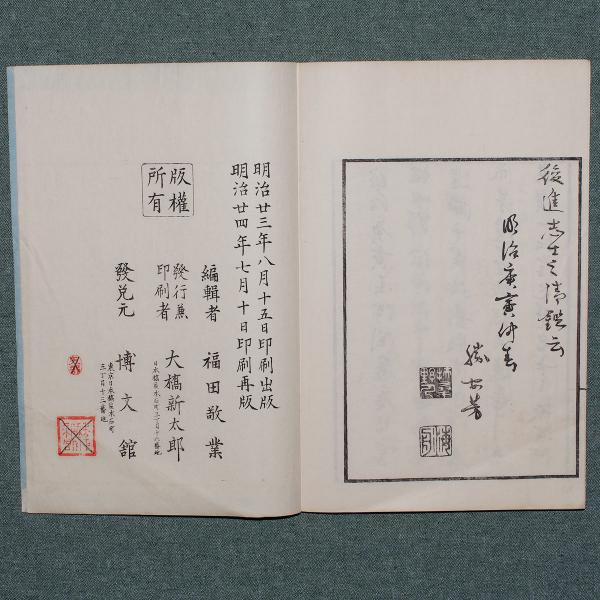 後進志士之清鑑云
明治庚寅仲春
勝安芳
明治廿三年八月十五日印刷出版
明治廿四年七月十日印刷再版
編輯者 福田敬業
發行兼印刷者 大橋新太郎
發兌元 博文館
東京日本橋區本石町
三丁目十六番地
版權
所有